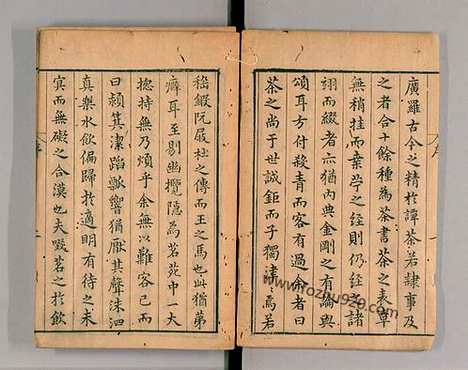 廣羅古今之精於譚茶若隸事及
之者合十餘種為茶書茶之表章
無稍挂而桑苧之經則仍經之諸
翊而綴者亦猶內典金剛之有論與
頌耳方付殺青而客有過余者曰
茶之尚于世誠鉅而子獨津為若
嵇鍛阮屐杜之傳而王之馬也此猶第
癖耳至剔幽攬隱為茗苑中一大
揔持無乃煩乎余無以難客已而
曰潁箕潔蹈瓢響猶厭其聲洙泗
真樂水飲偏歸於適明有待之未
冥而無礙之合漠也夫啜茗之於飲